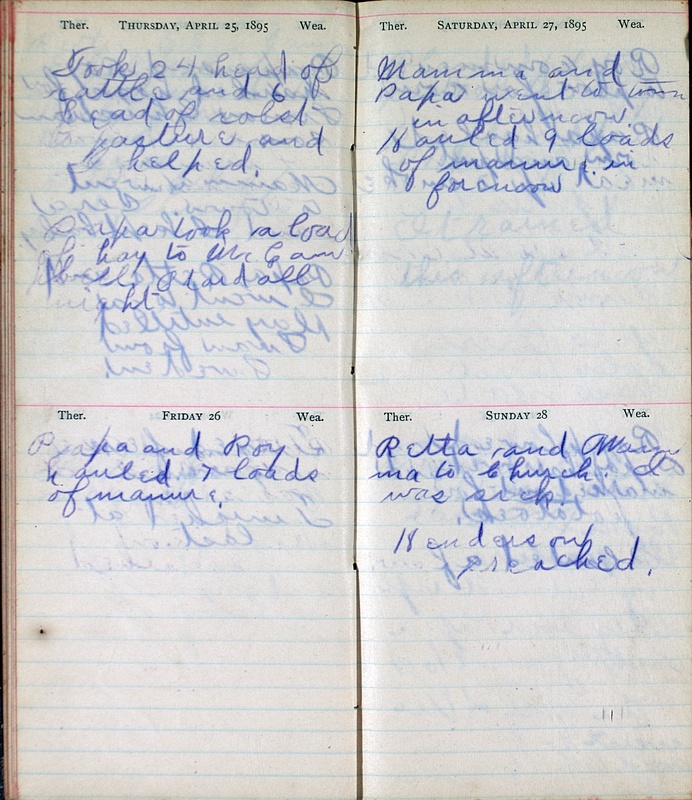 Ther. THURSDAY, APRIL 25, 1895 Wea.
Took 24 head of
cattle and 6
head of colst
to pasture and
I helped.
Papa took a load
of hay to Mc Cam
bells staid all
night
Ther. FRIDAY 26 Wea.
Papa and Roy
hauled 7 loads
of manure.
Ther. SATURDAY, APRIL 27, 1895 Wea.
Mamma and
Papa went to town
in afternoon.
Hauled 9 loads
of manure in
forenoon
Ther. SUNDAY 28 Wea.
Retta and Mam
ma to Church. I
was sick.
Henderson
preached.